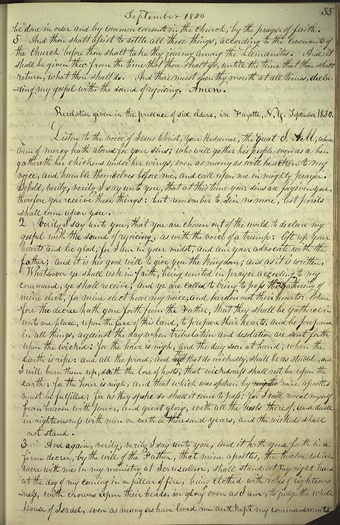 September 1830
55
be done in order and by common consent in the Church, by the prayer of faith.
5 And thou shalt assist to settle all these things, according to the Covenants of
the Church before thou shalt take thy journey among the Lamanites. And it
shall be given thee from the time that thou shalt go, until the time that thou shalt
return, what thou shalt do. And thou must open thy mouth at all times, decla
ring my gospel with the sound of rejoicing. Amen.
Revelation given in the presence of six elders, in Fayette, N. Y. September 1830.
Listen to the voice of Jesus Christ, your Redeemer, the Great I Am, whose
arm of mercy hath atoned for your sins; who will gather his people even as a hen
gathereth her chickens under her wings, even as many as will hearken to my
voice, and humble themselves before me, and call upon me in mighty prayer.
Behold, verily, verily I say unto you, that at this time your sins are forgiven you,
therefore you receive these things: but remember to sin no more, lest perils
shall come upon you.
2 Verily, I say unto you, that you are chosen out of the world to declare my
gospel with the sound of rejoicing, as with the voice of a trump: lift up your
hearts and be glad, for I am in your midst, and am your advocate with the
father; and it is his good will to give you the kingdom; and as it is written,
Whatsoever ye shall ask in faith, being united in prayer according to my
command, ye shall receive; and ye are called to bring to pass the gathering of
mine elect, for mine elect hear my voice, and harden not their hearts: where
fore the decree hath gone forth from the Father, that they shall be gathered in
unto one place, upon the face of this land, to prepare their hearts, and be prepared
in all things, against the day when tribulation and desolation are sent forth
upon the wicked: for the hour is nigh, and the day soon at hand, when the
earth is ripe: and all the proud, and they that do wickedly, shall be as stubble, and
I will burn them up, saith the Lord of hosts, that wickedness shall not be upon the
earth: for the hour is nigh, and that which was spoken by mine apostles
must be fulfilled; for as they spoke so shall it come to pass; for I will reveal myself
from heaven with power, and great glory, with all the hosts thereof, and dwell
in righteousness with men on earth a thousand years, and the wicked shall
not stand.
3 And again, verily, verily I say unto you, and it hath gone forth in a
firm decree, by the will of the Father, that mine apostles, the twelve which
were with me in my ministry at Jerusalem, shall stand at my right hand
at the day of my coming in a pillar of fire, being clothed with robes of righteous
ness, with crowns upon their heads, in glory even as I am, to judge the whole
house of Israel, even as many as have loved me and kept my commandments